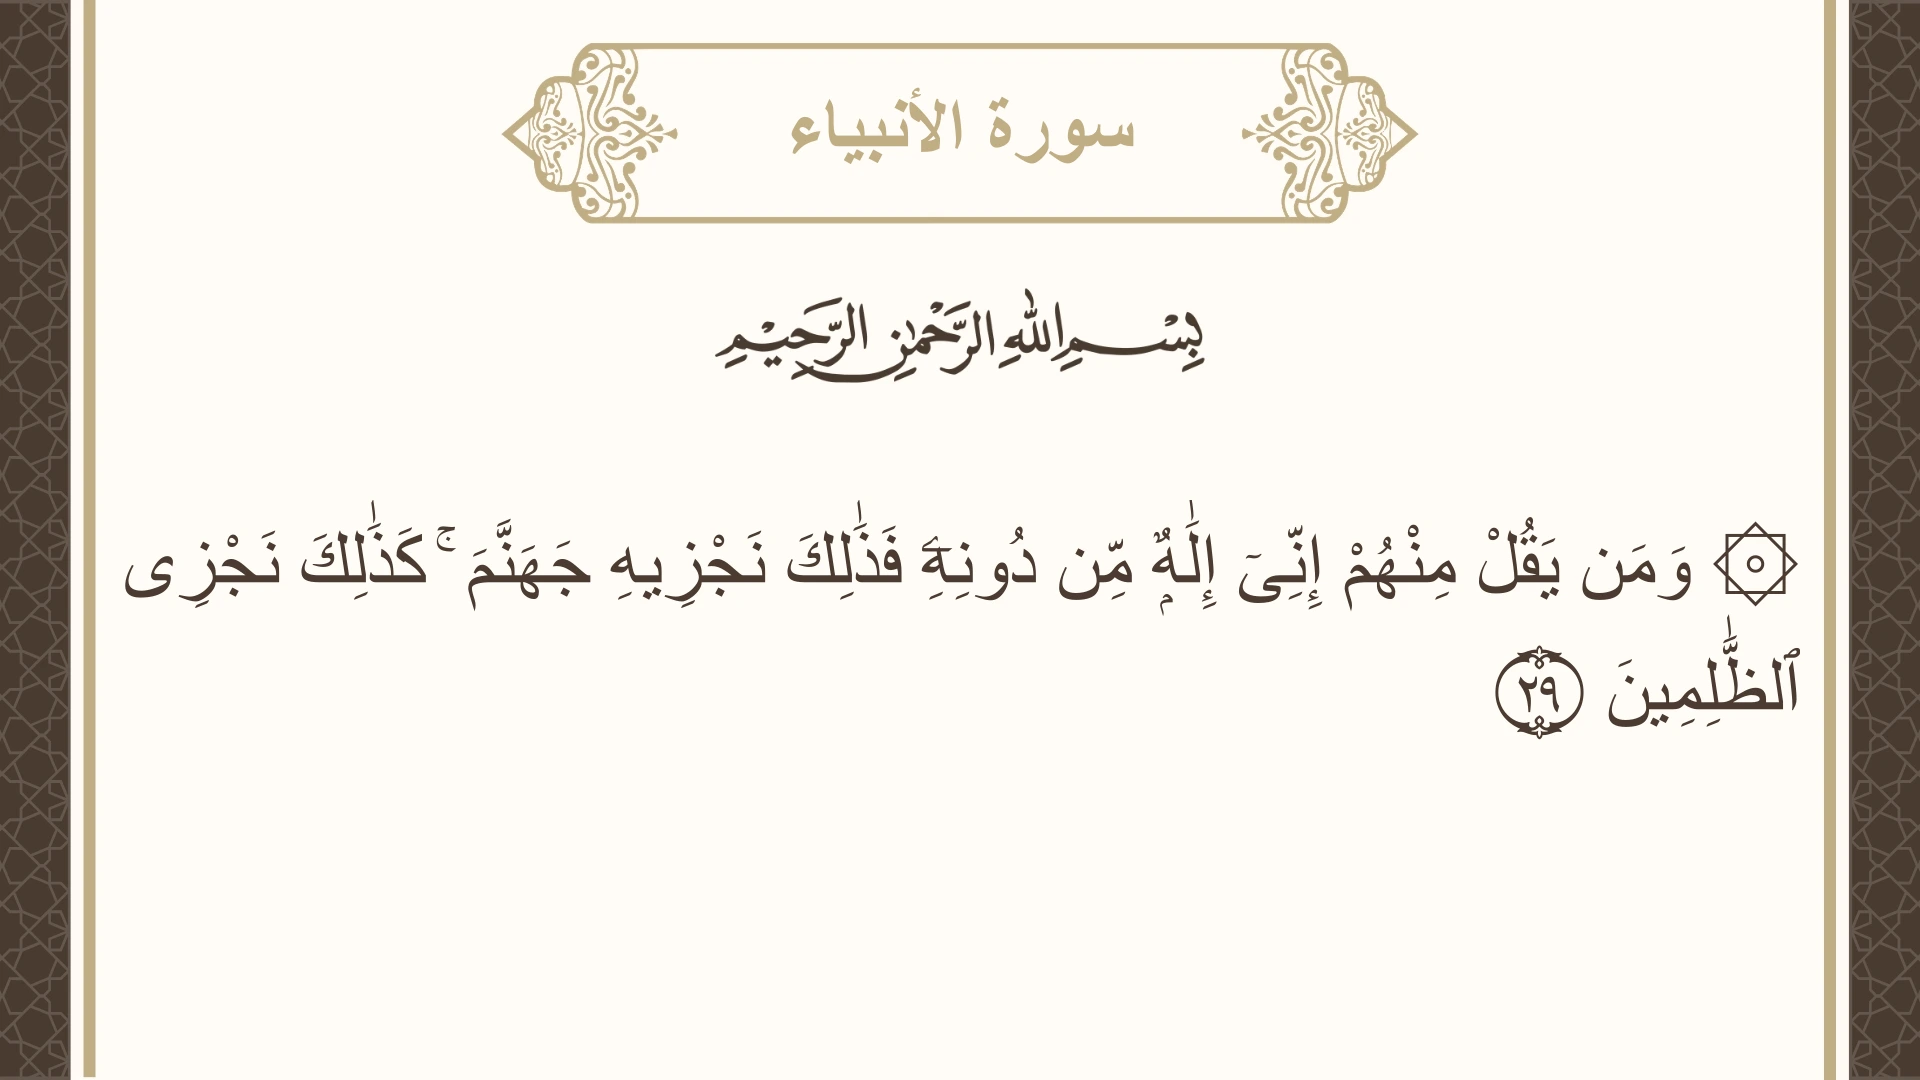 سورة الأنبياء
بِسْمِ اللهِ الرَّحْمٰنِ الرَّحِيْمِ
۞ وَمَن يَقُلْ مِنْهُمْ إِنِّىٓ إِلَٰهٌۭ مِّن دُونِهِۦٓ فَذَٰلِكَ نَجْزِيهِ جَهَنَّمَ ۚ كَذَٰلِكَ نَجْزِى
ٱلظَّٰلِمِينَ ٢٩